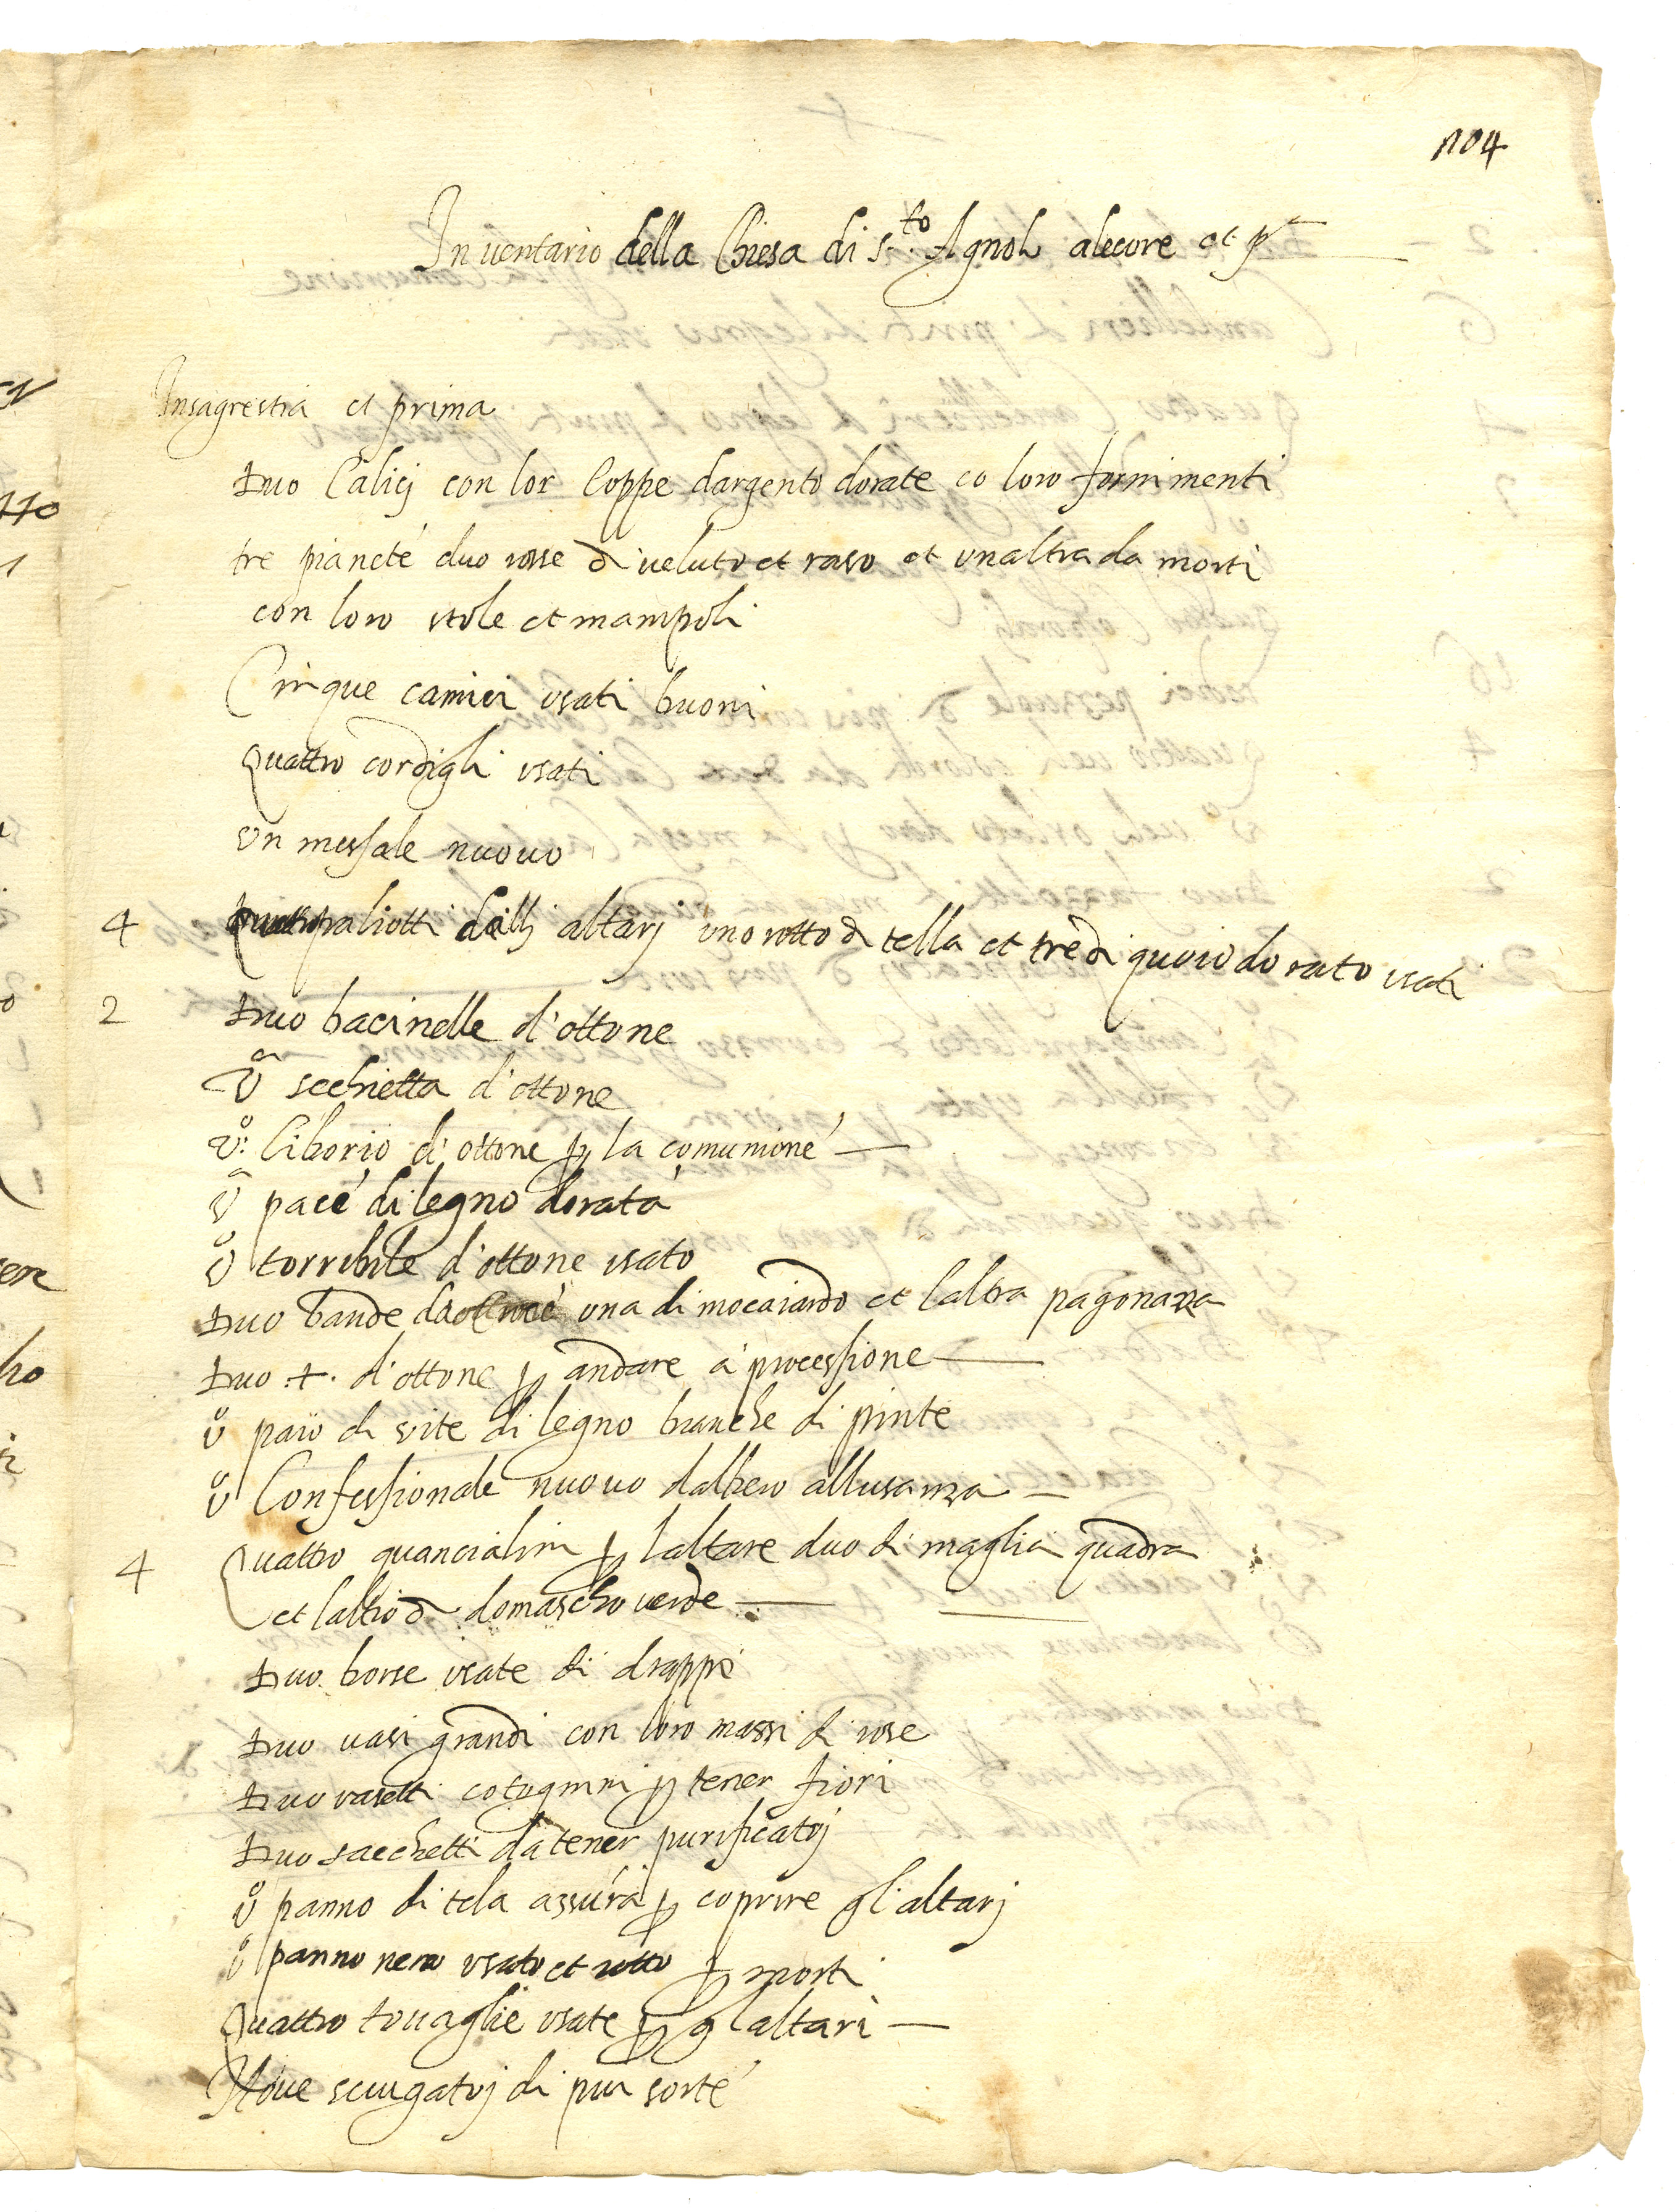 104
Inventario della Chiesa di s.to Agnolo alecore et p
Insagrestia et prima
Duo Calicj con lor Coppe dargento dorate co loro fornimenti
tre pianete duo rosse di veluto et raso et unaltra da morti
con loro stole et manipoli
Cinque camici usati buoni
Quattro cordigli usati
Un messale nuovo
4 Quatro paliotti dellj altarj uno rotto di tella et tre di quoio dorato usati
2 Duo bacinelle d'ottone
Va secchietta d'ottone
Vo: Ciborio di ottone p la comunione
Va pace di legno dorata
Vo torribile d'ottone usato
Duo bande da una di mocaiardo et laltra pagonazza
Duo .+. d'ottone p andare a processione
Vo paio di vite di legno branche di pinte
Vo Confessionale nuovo dalbero allusanza
4 Quattro guancialini p laltare duo di maglia quadra
et laltro di domascho verde
Duo borse usate di drappo
Duo vasi grandi con loro mazzi di rose
Duo vasetti cotognini p tener fiori
Duo sacchetti da tener purificatoj
Vo panno di tela azzura p coprire gl'altarj
Vo panno nero usato et rotto p morti
Quattro tovaglie usate p gl altari
Nove sciugatoj di piu sorte